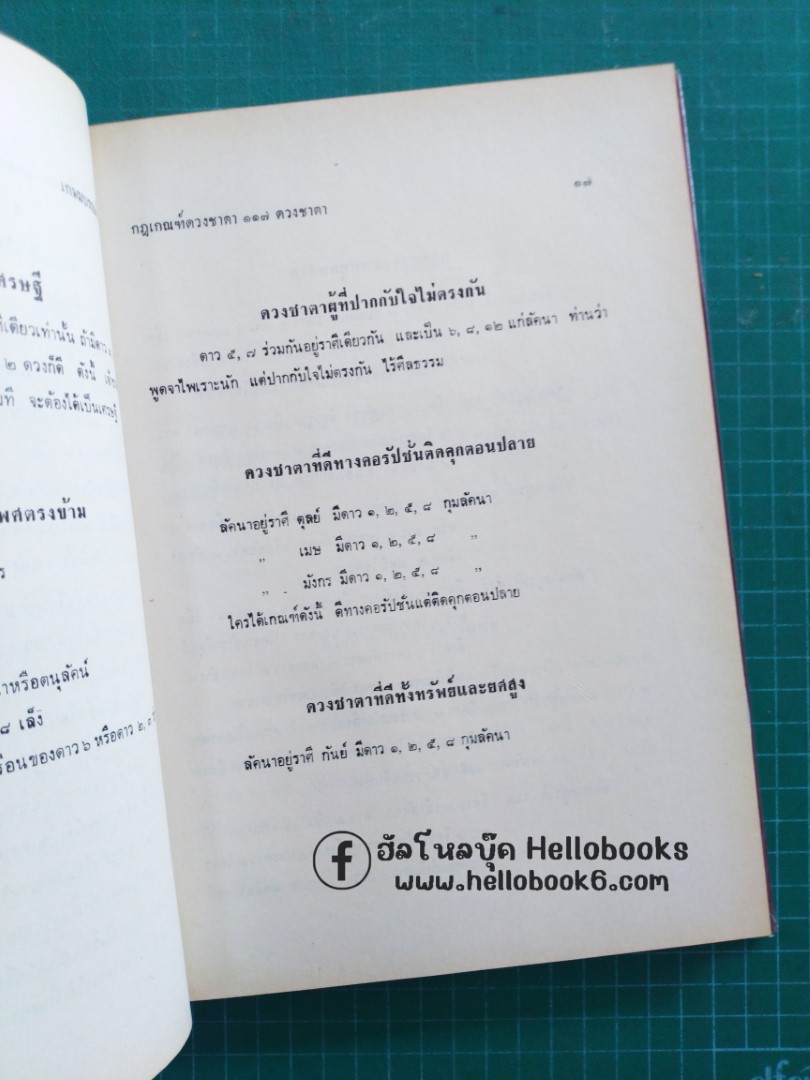 เศรษฐี
ที่เดียวเท่านั้น ถ้ามีดาว
๒ ดวงก็ดี ดังนี้
จะต้องได้เป็นเศรษฐี
เพศตรงข้าม
หรือตนุลัคน์
๘ เล็ง
เรือนของดาว ๖ หรือดาว ๒,
๑๗
กฎเกณฑ์ดวงชาตา ๑๑๗ ดวงชาตา
ดวงชาตาผู้ที่ปากกับใจไม่ตรงกัน
ดาว ๕, ๗ ร่วมกันอยู่ราศีเดียวกัน และเป็น ๖, ๘, ๑๒ แก่ลัคนา ท่านว่า
พูดจาไพเราะนัก แต่ปากกับใจไม่ตรงกัน ไร้ศีลธรรม
ดวงชาตาที่ดีทางคอรัปชั่นติดคุกตอนปลาย
ลัคนาอยู่ราศี ตุลย์ มีดาว ๑, ๒, ๕, ๘ กุมลัคนา
,, เมษ มีดาว ๑, ๒, ๕, ๘ ,,
,, มังกร มีดาว ๑, ๒, ๕, ๘ ,,
ใครได้เกณฑ์ดังนี้ ดีทางคอรัปชั่นแต่ติดคุกตอนปลาย
ดวงชาตาที่ดีทั้งทรัพย์และยศสูง
ลัคนาอยู่ราศี กันย์ มีดาว ๑, ๒, ๕, ๘ กุมลัคนา
f ฮัลโหลบุ๊ค Hellobooks
www.hellobook6.com